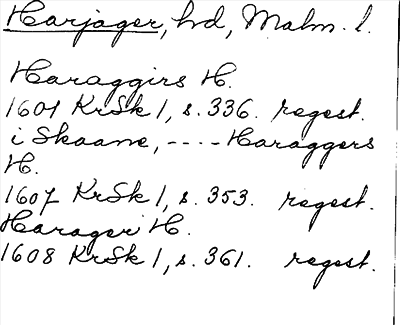 Harjager, hd, Malm. l.
Haraggirs H.
1601 KrSk 1, s. 336. regest.
i Skaane, ---- Haraggers
H.
1607 KrSk 1, s. 353. regest.
Harager H.
1608 KrSk 1, s. 361. regest.